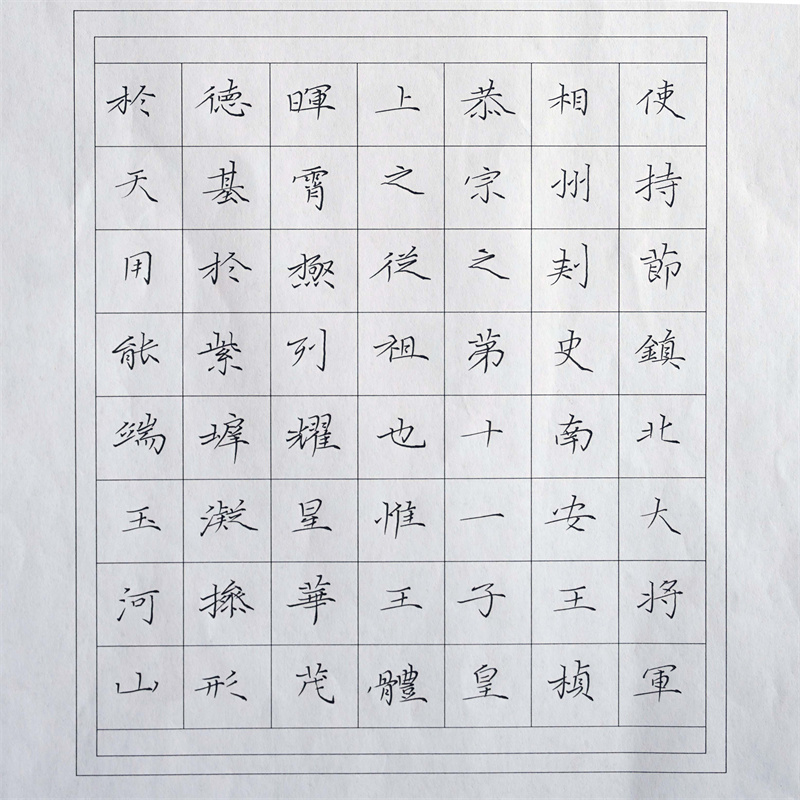 使持莭鎮北大将軍
相州刾史南安王楨
恭宗之苐十一子皇
上之従祖也惟王體
暉霄極列耀星華茂
徳基於紫墀凝操形
於天用能端玉河山